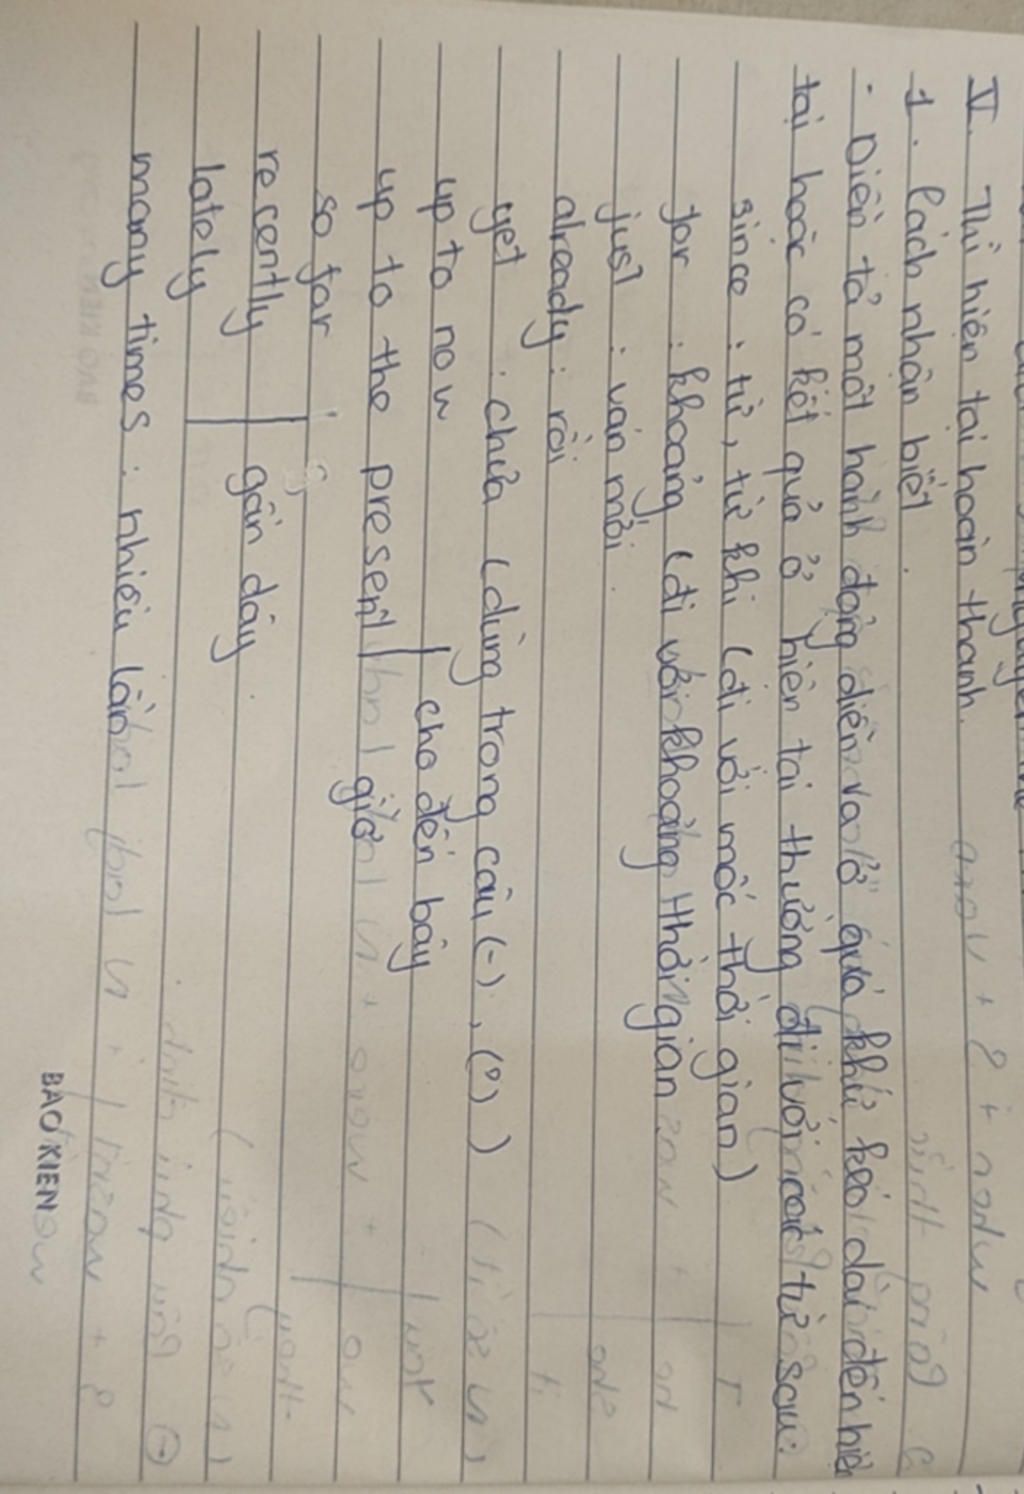 V. Thì hiện tại hoàn thành.
1. Cách nhận biết.
- Diễn tả một hành động diễn ra ở quá khứ kéo dài đến hiện
tại hoặc có kết quả ở hiện tại thường đi với các từ sau:
since : từ, từ khi (đi với mốc thời gian)
for : khoảng (đi với khoảng thời gian
just : ván mới.
already : rồi
yet : chưa (dùng trong câu (-), (?))
up to now
up to the present cho đến bây giờ
so far
recently gần đây.
lately
many times : nhiều lần
BAO KIEN